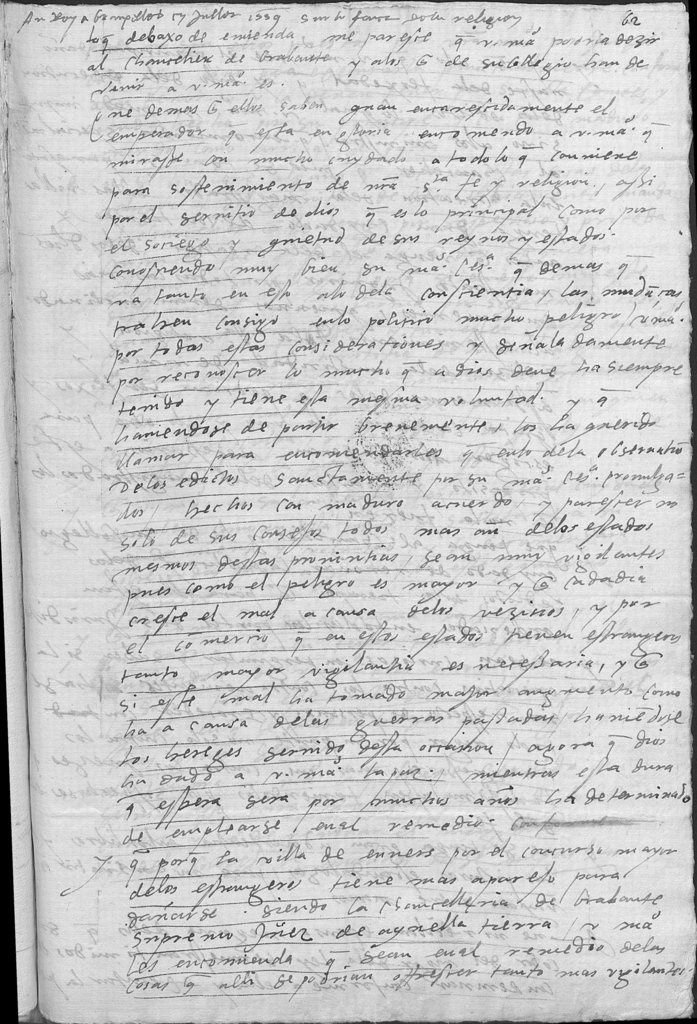 Au Roy a bruxelles Jullet 1559 sur le faict de la religion
62
lo q̃ debaxo de emienda me paresce q̃ v. mag. podria dezir
al Chanciller de brabante y a los q̃ de su collegio han de
venir a v. mag. es.
Que demas q̃ ellos saben quan encarescidamente el
emperador que esta en gloria encomendo a v. mag. q̃
mirasse con mucho cuydado a todo lo q̃ conviene
para sostenimiento de nr̃a s.ta fe y religion, assi
por el servitio de dios q̃ es lo principal como por
el sociego y quietud de sus reynos y estados.
Conosciendo muy bien su mag. Ces.a q̃ demas q̃
va tanto en esto a lo de la conscientia, las mudãças
trahen consigo en lo politico mucho peligro, v. mag.
por todas estas considerationes y señaladamente
por reconoscer lo mucho q̃ a dios deve ha siempre
tenido y tiene esta mesma voluntad. y q̃
haviendose de partir brevemente, los ha querido
llamar para encomendarles q̃ en lo de la observatiõ
de los edictos sanctamente por su mag. Ces.a promulga-
dos, hechos con maduro acuerdo, y parescer no
solo de sus consejos todos mas aũ de los estados
mesmos destas provintias sean muy vigilantes
pues como el peligro es mayor y q̃ cada dia
cresce el mal a causa de los vezinos, y por
el comercio q̃ en estos estados tienen estrangeros
tanto mayor vigilantia es necessaria, y q̃
si este mal ha tomado mayor augmento como
ha a causa de las guerras passadas, haviẽdose
los hereges servido dessa occasion, agora q̃ dios
ha dado a v. mag. la paz, mientras esta dura
q̃ espera sera por muchos años ha determinado
de emplearse en al remedio.
Y q̃ porq̃ la villa de envers por el concurso mayor
de los estrangero tiene mas aparejo para
dañarse. siendo la chancelleria de brabante
supremo Juez de aquella tierra, v. mag.
les encomienda q̃ sean en al remedio de las
cosas q̃ alli se podrian offrescer tanto mas vigilantes